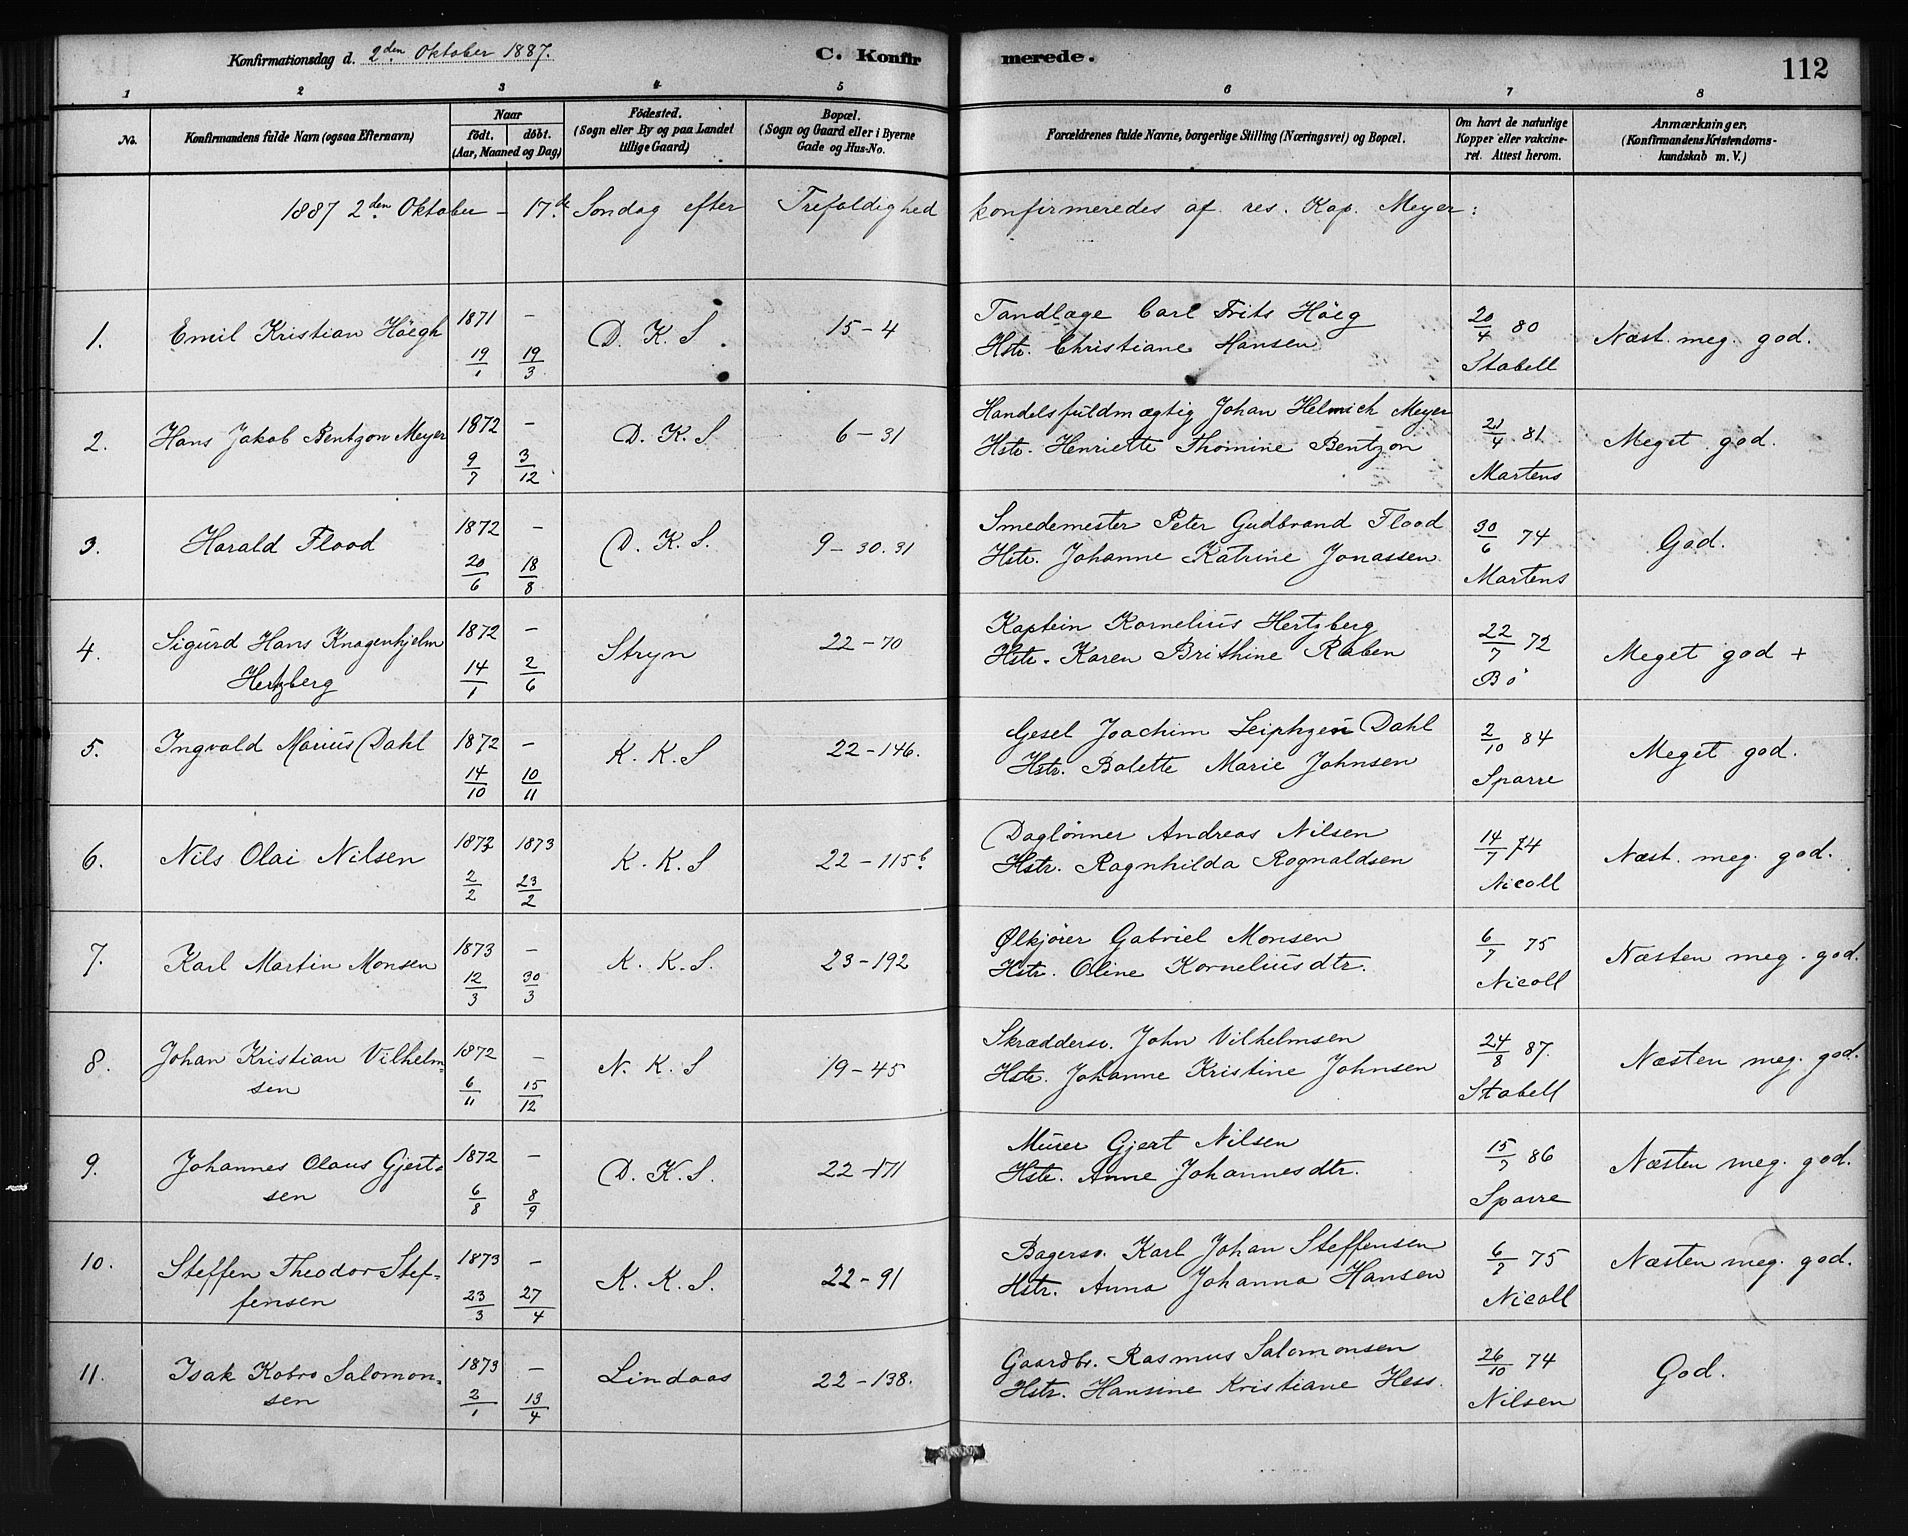 Konfirmationsdag d. 2den Oktober 1887. C. Konfirmerede. 112
1 2 3 4 5 6 7 8
No.
Konfirmandens fulde Navn (ogsaa Efternavn)
Naar
født. døbt.
(Aar, Maaned og Dag)
Fødested.
(Sogn eller By og paa Landet
tillige Gaard)
Bopæl.
(Sogn og Gaard eller i Byerne
Gade og Hus-No.
Forældrenes fulde Navne, borgerlige Stilling (Næringsvei) og Bopæl.
Om havt de naturlige
Kopper eller vakcine-
ret. Attest herom.
Anmærkninger.
(Konfirmandens Kristendoms-
kundskab m. V.)
1887 2den Oktober - 17de Søndag efter Trefoldighed konfirmeredes af res. Kap. Meyer:
1. Emil Kristian Höegh 1871 19/1 – 19/3 D. K. S. 15-4
Tandlæge Carl Frits Höeg
Hstr. Christiane Hansen
20/4 80
Stabell
Næst. meg. god.
2. Hans Jakob Bentzon Meyer 1872 9/7 – 3/12 D. K. S 6-31
Handelsfuldmægtig Johan Helmich Meyer
Hstr. Henriette Thomine Bentzon
21/4 81
Martens
Meget god.
3. Harald Flood 1872 20/6 – 18/8 D. K. S. 9-30.31
Smedemester Peter Gudbrand Flood
Hstr. Johanne Katrine Jonassen
30/6 74
Martens
God.
4. Sigurd Hans Knagenhjelm
Hertzberg
1872 14/1 – 2/6 Stryn 22-70
Kaptein Kornelius Hertzberg
Hstr. Karen Brithine Raben
22/7 72
Bö
Meget god +
5. Ingvald Marius Dahl 1872 14/10 – 10/11 K. K. S 22-146.
Gesel Joachim Dahl
Hstr. Bolette Marie Johnsen
2/10 84
Sparre
Meget god.
6. Nils Olai Nilsen 2/2 1873 23/2 K. K. S 22-115b
Daglönner Andreas Nilsen
Hstr. Ragnhilda Rognaldsen
14/7 74
Nicoll
Næst. meg. god.
7. Karl Martin Monsen 1873 12/3 – 30/3 K. K. S. 23-192
Ølkjører Gabriel Monsen
Hstr. Oline Korneliusdtr.
6/7 75
Nicoll
Næsten meg. god.
8. Johan Kristian Vilhelm-
sen
1872 6/11 – 15/12 N. K. S 19-45
Skræddersv. John Vilhelmsen
Hstr. Johanne Kristine Johnsen
24/8 87.
Stabell
Næsten meg. god.
9. Johannes Olaus Gjert-
sen
1872 6/8 – 8/9 D. K. S. 22-171
Murer Gjert Nilsen
Hstr. Anne Johannesdtr.
15/7 86
Sparre
Næsten meg. god.
10. Steffen Theodor Stef-
fensen
1873 23/3 – 27/4 K. K. S. 22-91
Bagersv. Karl Johan Steffensen
Hstr. Anna Johanna Hansen
6/7 75
Nicoll
Næsten meg. god.
11. Isak Kobro Salomon-
sen
1873 2/1 – 13/4 Lindaas 22-138.
Gaardbr. Rasmus Salomonsen
Hstr. Hansine Kristiane Hess.
26/10 74
Nilsen
God.